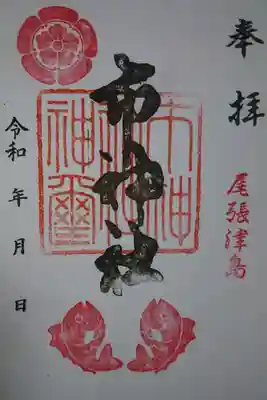 奉拝
尾張津島
市神社
市神
神璽
令和 年 月 日